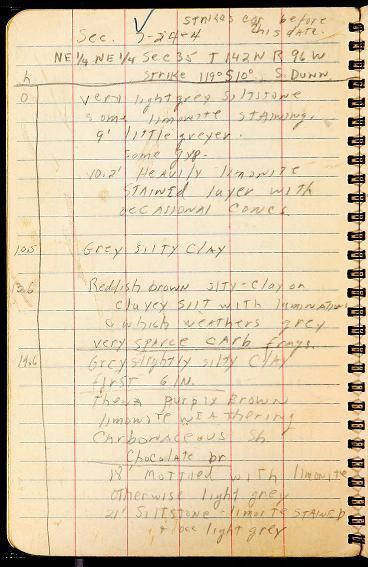 strikes cor. before
this date.
Sec. 7-24-4
NE 1/4 NE 1/4 Sec 35 T 142 N R 96 W
h strike 119° S10° S. Dunn
0 very light grey Siltstone
some limonite staining.
9' little greyer.
some gyp.
10.2' Heavily limonite
STAINED layer with
occasional concs.
10.5 Grey Silty Clay
13.6 Reddish brown silty-clay or
clayey silt with laminations
& which weathers grey
very sparce carb frags.
Grey slightly silty Clay
first 6 IN.
Then purply Brown
limonite weathering
Carbonaceous Sh
Chocolate br
18' Mottled with limonite
otherwise light grey
21' SILTSTONE - limonite STAINED
+ occ light grey